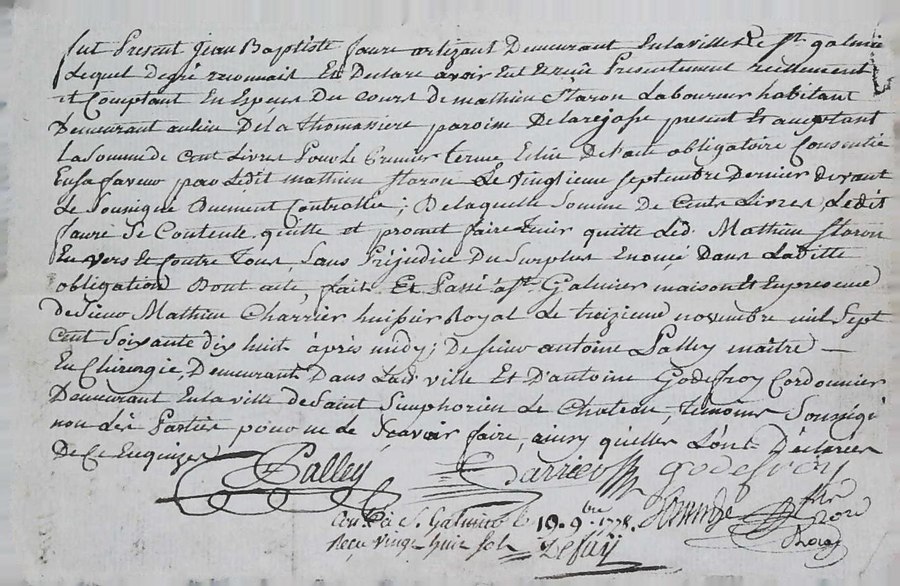 fut Present Jean Baptiste faure artizant Demeurant En la ville de St galmie
Lequel Degré reconnait Et Declare avoir Eut Et recû Presentement reellement
et Comptant En Especes Du Cours de mathieu Staron Laboureur habitant
Demeurant au lieu De la thomassiere paroisse De larejasse present Et aceptant
La Somme de Cent Livres Pour le Premier terme Echu De l'acte obligatoire Consentie
En sa faveur par Ledit mathieu Staron Le vingtieme Septembre Dernier devant
Le Sousigné Duement Controllée ; De laquelle Somme De Cent Livres, Ledit
faure Se Contente, quitte et promet faire tenir quitte Led. Mathieu Staron
En vers et Contre Tous, Sans Préjudice Du Surplus Enoncé Dans La ditte
obligation Dont acte, fait Et Passé a St Galmier maison Et En presence
de Sieur Mathieu Charrier huissier Royal Le treizieme novembre mil Sept
Cent Soixante dix huit après midy ; De Sieur antoine Palley maître
En Chirurgie, Demeurant Dans Lad. ville Et D'antoine Godefroy Cordonnier
Demeurant En la ville de Saint Simphorien Le Chateau, temoins Sousigné
non Les Parties pour ne le Sçavoir faire, ainsy qu'elles L'ont Déclarées
De Ce Enquizes
Palley Charrier godefroy
Con. à S. Galmier le 19 9bre 1778
Recu vingt huit sols